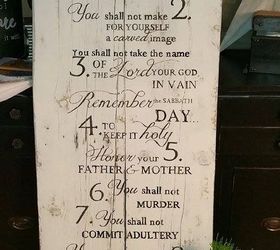 You shall not make 2.
FOR YOURSELF
a carved image
You shall not take the name
3. OF THE Lord YOUR GOD
IN VAIN
Remember THE SABBATH
DAY...
4. TO KEEP IT holy
Honor your 5.
FATHER & MOTHER
6. You shall not
MURDER
7. You shall not
COMMIT ADULTERY
You